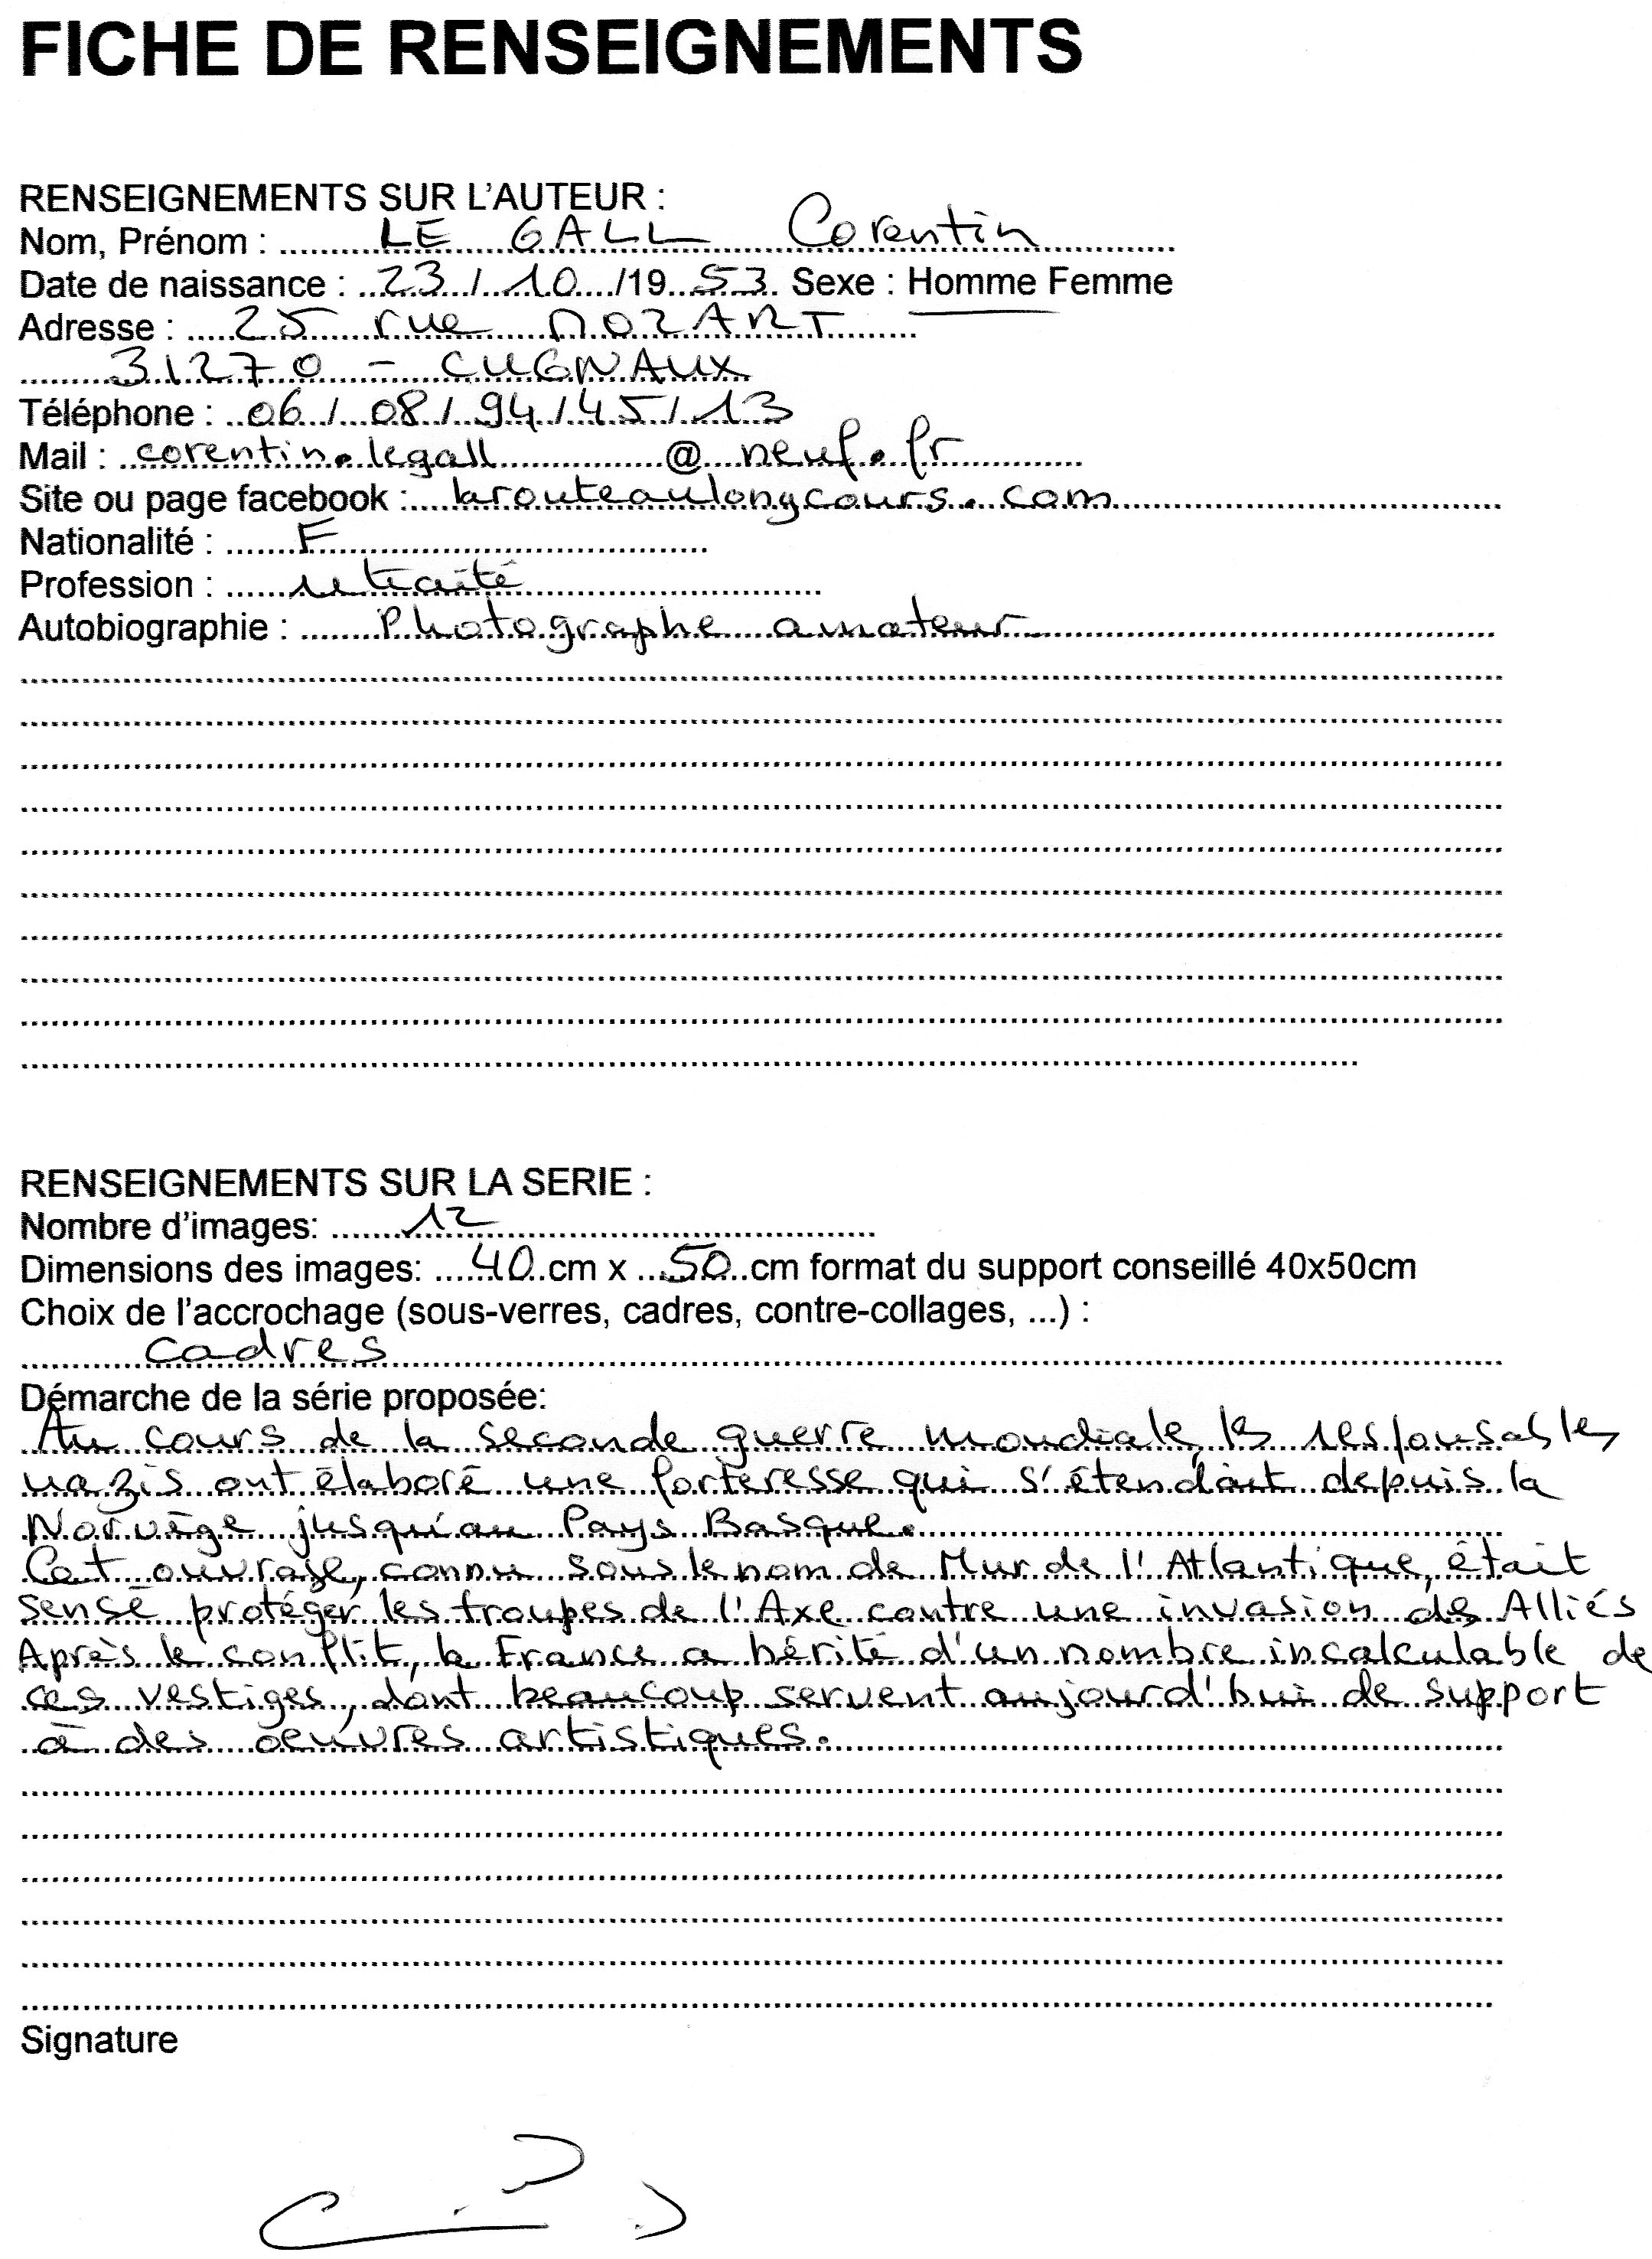 FICHE DE RENSEIGNEMENTS
RENSEIGNEMENTS SUR L'AUTEUR :
Nom, Prénom : LE GALL Corentin
Date de naissance : 23 / 10 /19 53 Sexe : Homme Femme
Adresse : 25 rue MOZART
31270 - CUGNAUX
Téléphone : 06 / 08 / 94 / 45 / 13
Mail : corentin.legall @ neuf.fr
Site ou page facebook : larouteaulongcours.com
Nationalité : F
Profession : retraité
Autobiographie : Photographe amateur
RENSEIGNEMENTS SUR LA SERIE :
Nombre d'images: 12
Dimensions des images: 40 cm x 50 cm format du support conseillé 40x50cm
Choix de l'accrochage (sous-verres, cadres, contre-collages, ...) :
cadres
Démarche de la série proposée:
Au cours de la seconde guerre mondiale, les responsables
nazis ont élaboré une forteresse qui s'étendait depuis la
Norvège jusqu'au Pays Basque.
Cet ouvrage, connu sous le nom de Mur de l'Atlantique, était
sensé protéger les troupes de l'Axe contre une invasion des Alliés
Après le conflit, la France a hérité d'un nombre incalculable de
ces vestiges, dont beaucoup servent aujourd'hui de support
à des oeuvres artistiques.
Signature